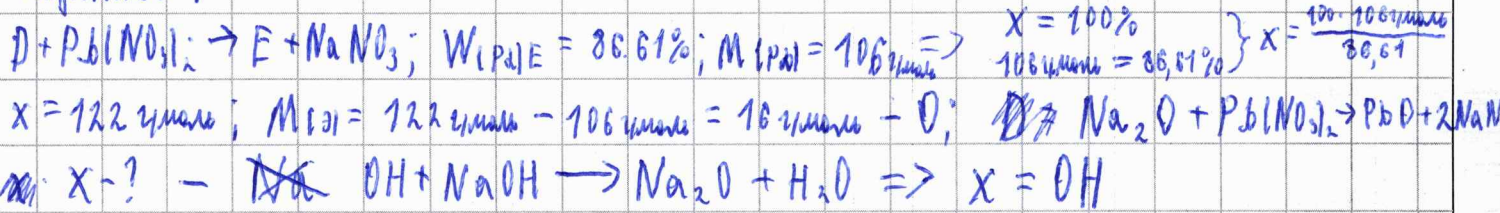 D + Pb(NO₃)₂ → E + NaNO₃; W(Pd)E = 86.61%; M(Pd) = 106 г/моль => x = 100% 106 г/моль = 86,61% } x = 100 · 106 г/моль / 86,61
x = 122 г/моль; M(Э) = 122 г/моль – 106 г/моль = 16 г/моль – O; Na₂O + Pb(NO₃)₂ → PbO + 2NaN
x - ? – OH + NaOH ⟶ Na₂O + H₂O => x = OH